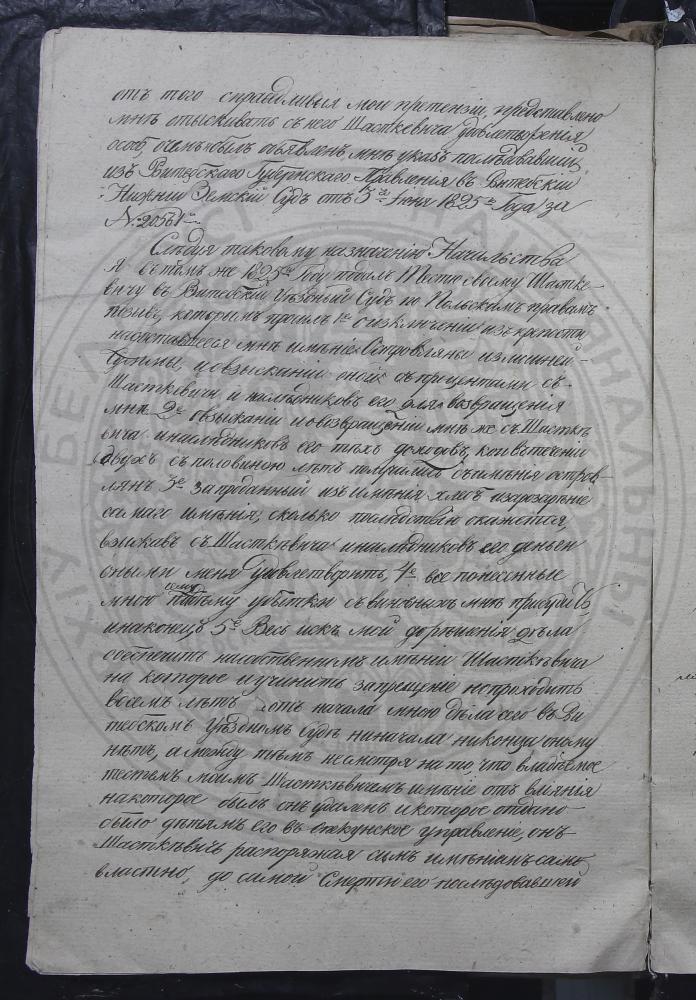 отъ того справдливыя мои претензіи, представлено
мнѣ отыскивать съ него Шасткевича удовлетворенія
особ, о чемъ былъ объявленъ мнѣ указъ послѣдовавшій
изъ Витебскаго Губернскаго Правленія въ Витебскій
Нижній Земскій Судъ отъ 3го Іюня 1825го Года за
№
Слѣдуя таковому назначенію Начальства
я в томъ же 1825мъ Году подалъ Тестю своему Шастке-
вичу въ Витебскій Уѣздный Судъ по Польскимъ правамъ
позывъ, которымъ просилъ 1е о изключеніи изъ крѣпости
на доставшееся мнѣ имѣніе Островляны излишней
суммы, и о взысканіи оной съ процентами съ
Шасткѣвича и наслѣдниковъ его для возвращенія
мнѣ 2е о взысканіи и о возвращеніи мнѣ же съ Шасткѣ
вича и наслѣдниковъ его тѣхъ доходовъ, кои в теченіи
двухъ съ половиною лѣтъ получилъ съ имѣнія Остров-
лянъ 3е за проданный изъ имѣнія хлѣбъ и за разореніе
самаго имѣнія, сколько послѣдствію окажется
взискавъ съ Шасткѣвича и наслѣдниковъ его деньги
оными меня удовлетворить, 4е все понесенные
мною по сему дѣлу убытки съ виновныхъ мнѣ
и наконецъ 5е Весь искъ мой до рѣшенія дѣла
обеспечить на собственномъ имѣніи Шасткѣвича
на которое и учинить запрещеніе но проходитъ
восемъ лѣтъ отъ начала мною дѣла сего въ Ви
тебскомъ Уѣздномъ Судѣ ни начала ни конца оному
нѣтъ, а между тѣмъ не смотря на то, что владѣемое
тестемъ моимъ Шасткѣвичемъ имѣніе отъ вліянія
на которое былъ онъ удаленъ и которое отдано
было дѣтямъ его въ опекунское управленіе, онъ
Шасткѣвичъ распоряжая симъ имѣніемъ само
властно, до самой Смерти его послѣдовавшей